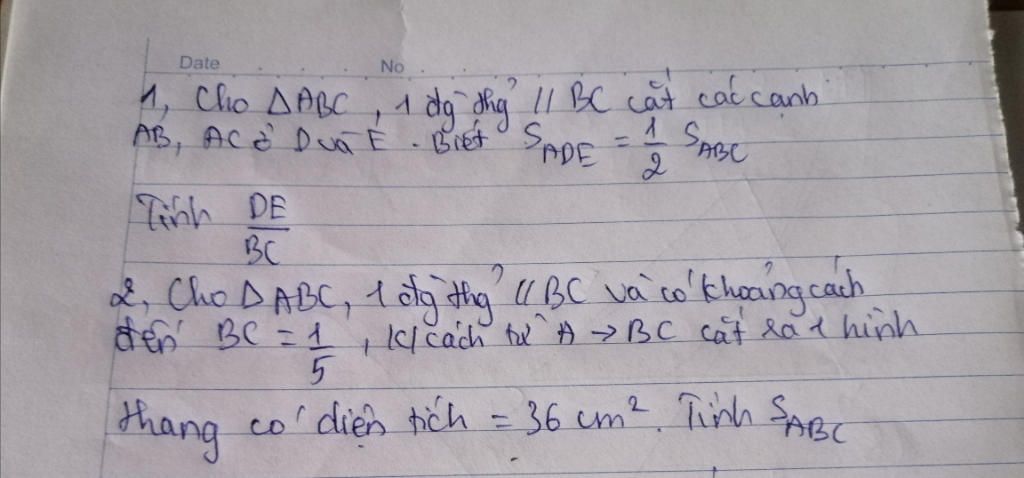 Date No
1, Cho ΔABC, 1 đg thg // BC cắt các cạnh
AB, AC ở D và E. Biết S_ADE = 1/2 S_ABC
Tính DE/BC
2, Cho Δ ABC, 1 đg thg // BC và có khoảng cách
đến BC = 1/5, k/cách từ A → BC cắt ra 1 hình
thang có diện tích = 36 cm². Tính S_ABC